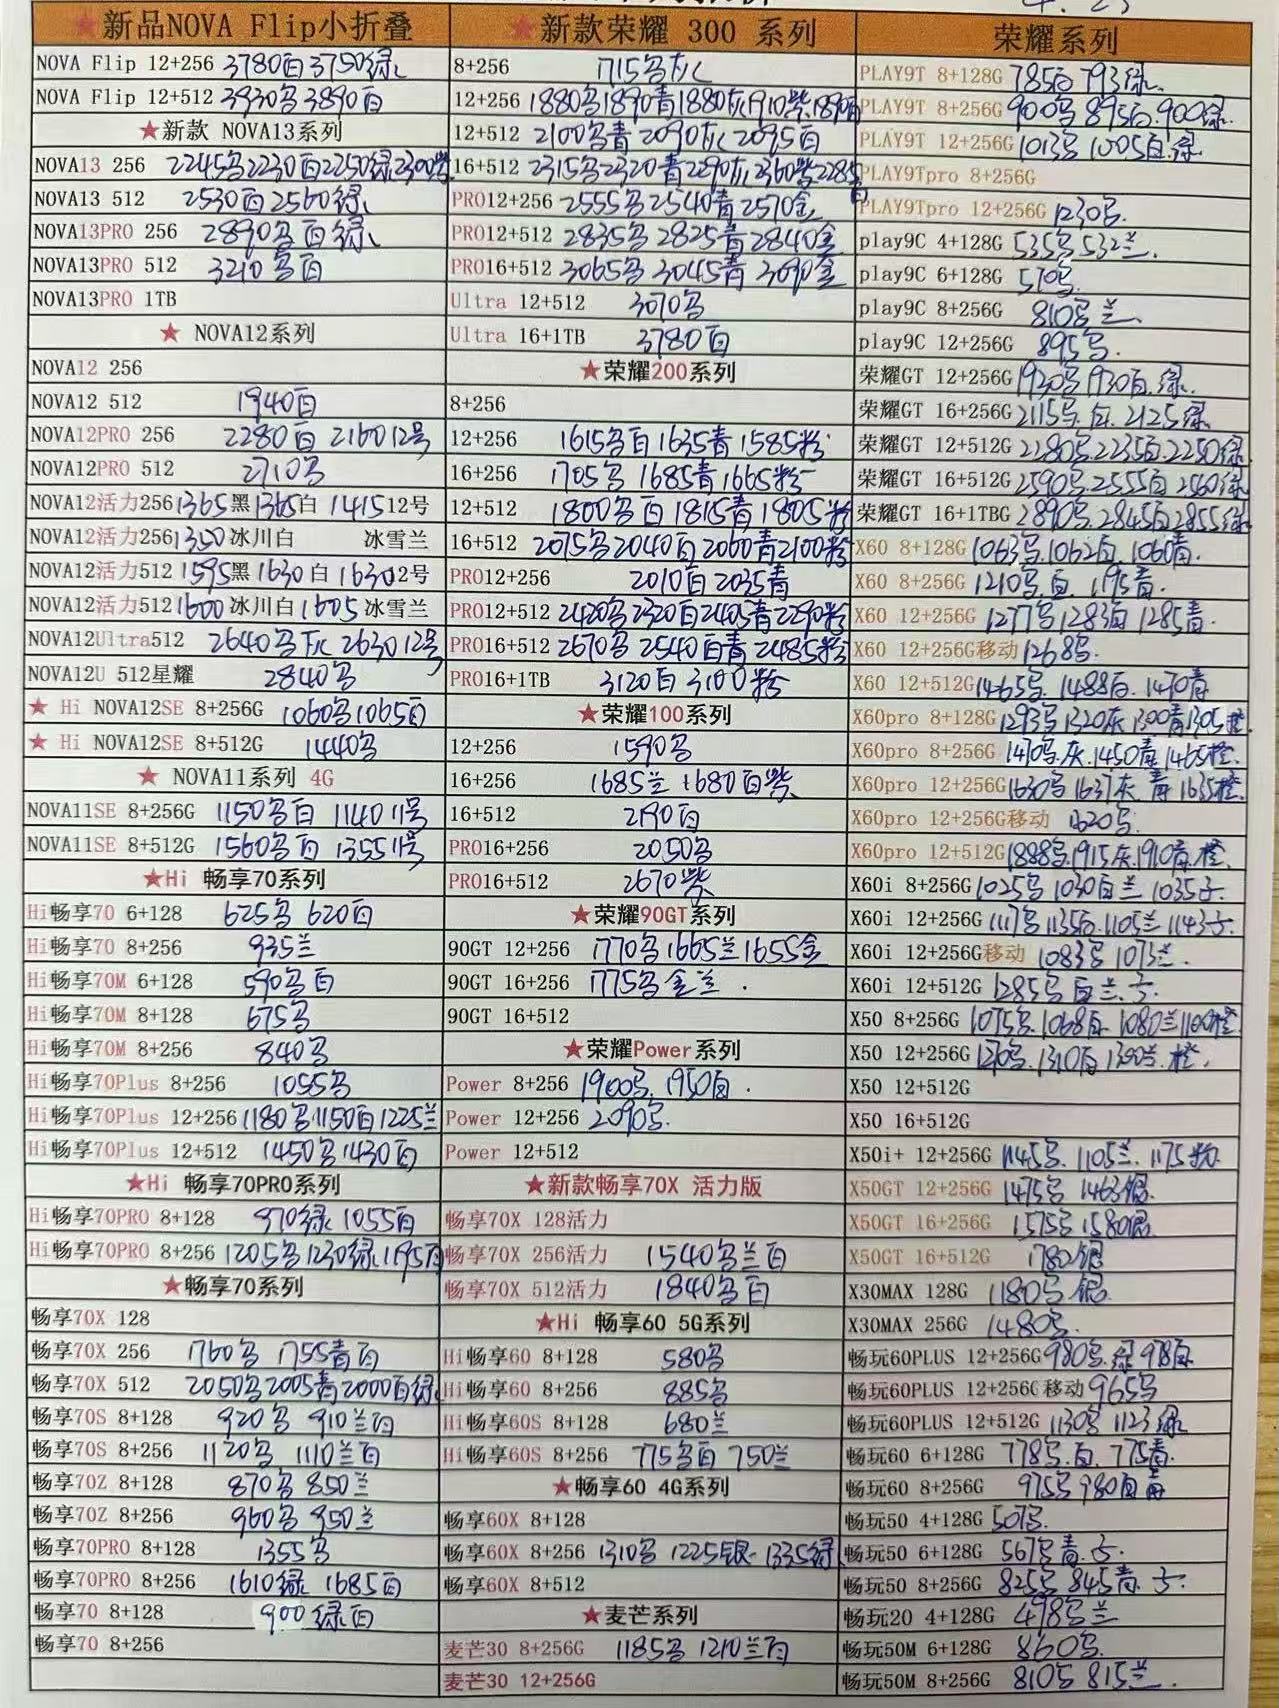 4. 23
★新品NOVA Flip小折叠
NOVA Flip 12+256 3780白3750绿
NOVA Flip 12+512 3930另3890白
★新款 NOVA13系列
NOVA13 256 2245另2230白2250绿2300紫
NOVA13 512 2530白2560绿
NOVA13PRO 256 2890另白绿
NOVA13PRO 512 3210另白
NOVA13PRO 1TB
★ NOVA12系列
NOVA12 256
NOVA12 512 1940白
NOVA12PRO 256 2280白 2160 12号
NOVA12PRO 512 2710另
NOVA12活力256 1365黑1365白 1415 12号
NOVA12活力256 1350冰川白 冰雪兰
NOVA12活力512 1595黑1630白1630 2号
NOVA12活力512 1600冰川白1605冰雪兰
NOVA12Ultra512 2640另灰 2630 12号
NOVA12U 512星耀 2840另
★ Hi NOVA12SE 8+256G 1060另1065白
★ Hi NOVA12SE 8+512G 1440另
★ NOVA11系列 4G
NOVA11SE 8+256G 1150另白 1140 11号
NOVA11SE 8+512G 1560另白 1355 11号
★Hi 畅享70系列
Hi畅享70 6+128 625另 620白
Hi畅享70 8+256 935兰
Hi畅享70M 6+128 590另白
Hi畅享70M 8+128 675另
Hi畅享70M 8+256 840另
Hi畅享70Plus 8+256 1055另
Hi畅享70Plus 12+256 1180另1150白1225兰
Hi畅享70Plus 12+512 1450另1430白
★Hi 畅享70PRO系列
Hi畅享70PRO 8+128 970绿 1055白
Hi畅享70PRO 8+256 1205另1230绿1195白
★畅享70系列
畅享70X 128
畅享70X 256 1760另 1755青白
畅享70X 512 2050另2005青2000白绿
畅享70S 8+128 920另 910兰白
畅享70S 8+256 1120另 1110兰白
畅享70Z 8+128 870另 850兰
畅享70Z 8+256 960另 950兰
畅享70PRO 8+128 1355另
畅享70PRO 8+256 1610绿 1685白
畅享70 8+128 900绿白
畅享70 8+256
★新款荣耀 300 系列
8+256 1715另灰
12+256 1880另1890青1880灰1910紫1890白
12+512 2100另青 2090灰 2095白
16+512 2315另2320青2290灰2360紫2285白
PRO12+256 2555另2540青2570金
PRO12+512 2835另 2825青2840金
PRO16+512 3065另 3045青 3090金
Ultra 12+512 3070另
Ultra 16+1TB 3780白
★荣耀200系列
8+256
12+256 1615另白1635青1585粉
16+256 1705另 1685青1665粉
12+512 1800另白1815青1805粉
16+512 2075另2040白2060青2100粉
PRO12+256 2010白2035青
PRO12+512 2420另2320白2405青2290粉
PRO16+512 2670另2540白青2485粉
PRO16+1TB 3120白 3100粉
★荣耀100系列
12+256 1590另
16+256 1685兰 1680白紫
16+512 2190白
PRO16+256 2050另
PRO16+512 2670紫
★荣耀90GT系列
90GT 12+256 1770另1665兰1655金
90GT 16+256 1775另金兰.
90GT 16+512
★荣耀Power系列
Power 8+256 1900另.1950白.
Power 12+256 2090另.
Power 12+512
★新款畅享70X 活力版
畅享70X 128活力
畅享70X 256活力 1540另兰白
畅享70X 512活力 1840另白
★Hi 畅享60 5G系列
Hi畅享60 8+128 580另
Hi畅享60 8+256 885另
Hi畅享60S 8+128 680兰
Hi畅享60S 8+256 775另白 750兰
★畅享60 4G系列
畅享60X 8+128
畅享60X 8+256 1310另 1225银 1335绿
畅享60X 8+512
★麦芒系列
麦芒30 8+256G 1185另 1210兰白
麦芒30 12+256G
荣耀系列
PLAY9T 8+128G 785白 793绿.
PLAY9T 8+256G 900另 895白.900绿.
PLAY9T 12+256G 1013另 1005白.绿
PLAY9Tpro 8+256G
PLAY9Tpro 12+256G 1230另.
play9C 4+128G 535另532兰.
play9C 6+128G 570另.
play9C 8+256G 810另兰.
play9C 12+256G 895另.
荣耀GT 12+256G 1920另1930白.绿.
荣耀GT 16+256G 2115另.白.2125绿
荣耀GT 12+512G 2280另.2235白.2250绿
荣耀GT 16+512G 2590另.2555白2560绿
荣耀GT 16+1TBG 2890另.2845白2855绿
X60 8+128G 1063另.1062白.1060青.
X60 8+256G 1210另.白.1195青.
X60 12+256G 1277另1283白1285青.
X60 12+256G移动 1268另.
X60 12+512G 1465另.1488白.1470青
X60pro 8+128G 1293另1320灰1300青1305橙.
X60pro 8+256G 1470另.灰.1450青1465橙.
X60pro 12+256G 1630另1637灰 青1635橙.
X60pro 12+256G移动 1620另.
X60pro 12+512G 1888另.1915灰.1910青.橙.
X60i 8+256G 1025另 1030白兰 1035子.
X60i 12+256G 1117另1135白.1105兰1143子.
X60i 12+256G移动 1083另1073兰.
X60i 12+512G 1285另白兰.子.
X50 8+256G 1075另.1068白.1080兰1100橙
X50 12+256G 1270另.1310白1300兰.橙.
X50 12+512G
X50 16+512G
X50i+ 12+256G 1145另.1105兰.1175粉.
X50GT 12+256G 1475另 1463银.
X50GT 16+256G 1575另1580银.
X50GT 16+512G 1780银
X30MAX 128G 1180另 银.
X30MAX 256G 1480另.
畅玩60PLUS 12+256G 980另.绿978白
畅玩60PLUS 12+256G移动 965另
畅玩60PLUS 12+512G 1130另 1123绿
畅玩60 6+128G 778另.白.775青.
畅玩60 8+256G 975另980白青
畅玩50 4+128G 507另.
畅玩50 6+128G 567另青.子.
畅玩50 8+256G 825另845青.子.
畅玩20 4+128G 498另兰
畅玩50M 6+128G 860另.
畅玩50M 8+256G 810另815兰.